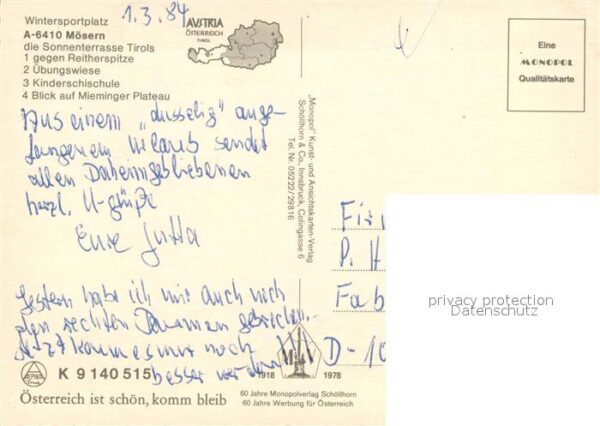 1.3.84
Wintersportplatz
A-6410 Mösern
die Sonnenterrasse Tirols
1 gegen Reitherspitze
2 Übungswiese
3 Kinderschischule
4 Blick auf Mieminger Plateau
AUSTRIA
ÖSTERREICH
TIROL
Eine
MONOPOL
Qualitätskarte
Aus einem „dusselig" ange-
fangenem Urlaub sendet
allen Daheimgebliebenen
herzl. U-grüße
Eure Jutta
Gestern habe ich mir auch noch
den rechten Daumen gebrochen.
Jetzt kann es nur noch
besser werden!!!
„Monopol" Kunst- und Ansichtskarten-Verlag
Schöllhorn & Co., Innsbruck, Colingasse 6
Tel. Nr. 05222/29816
Fir
P. H
Fab
D-10
privacy protection
Datenschutz
K 9 140 515
1918 MV 1978
Österreich ist schön, komm bleib
60 Jahre Monopolverlag Schöllhorn
60 Jahre Werbung für Österreich